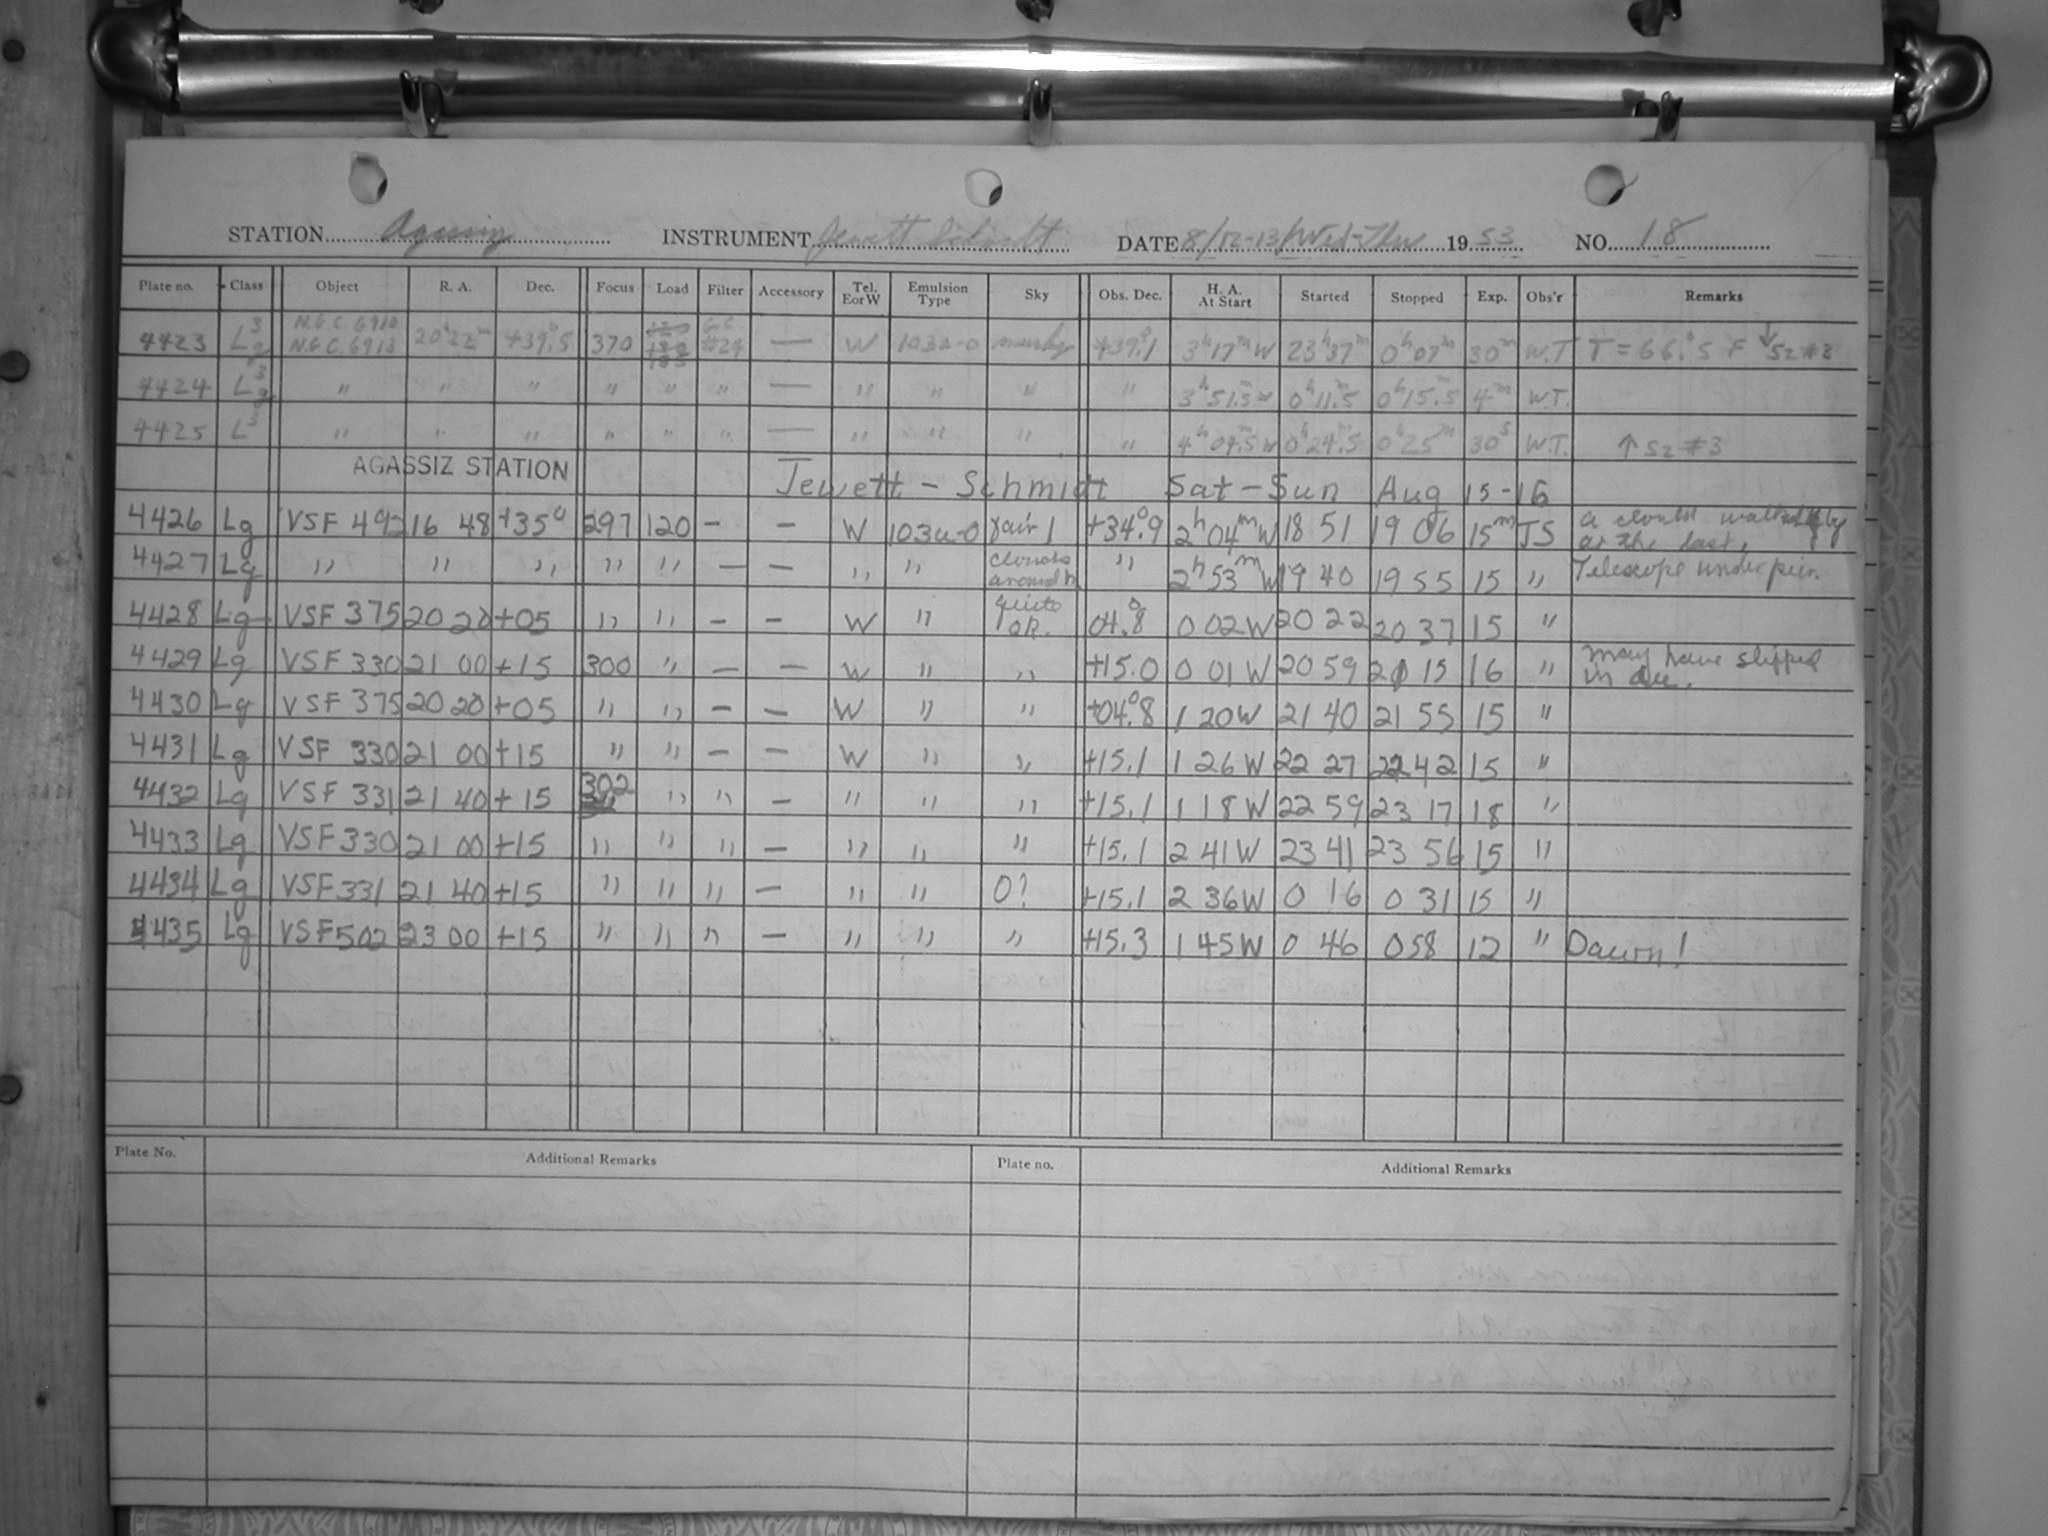 STATION Agassiz INSTRUMENT Jewett Schmidt DATE 8/12-13/Wed-Thu 1953 NO. 18
Plate no. Class Object R. A. Dec. Focus Load Filter Accessory Tel. E or W Emulsion Type Sky Obs. Dec. H. A. At Start Started Stopped Exp. Obs'r Remarks
4423 Lg3 N.G.C. 6910 N.G.C. 6913 20h22m +39°.5 370 #24 — W 103a-O +39°.1 3h17mW 23h37m 0h07m 30m W.T T = 66.°5 F ↓ S2 #3
4424 Lg3 " " " " " " — " " " " 3h51.5mW 0h11.5m 0h15.5m 4m W.T.
4425 L3 " " " " " " — " " " " 4h04.5mW 0h24.5m 0h25m 30s W.T. ↑ S2 #3
AGASSIZ STATION Jewett - Schmidt Sat - Sun Aug 15-16
4426 Lg VSF 492 16 48 +35° 297 120 - - W 103a-O fair +34°.9 2h04mW 18 51 19 06 15m JS a cloud by at the last,
4427 Lg " " " " " - - " " clouds around +" 2h53mW 19 40 19 55 15 " Telescope under pier.
4428 Lg VSF 375 20 20 +05 " " - - W " quite OK. 04°.8 0 02W 20 22 20 37 15 "
4429 Lg VSF 330 21 00 +15 300 " - - W " " +15.0 0 01W 20 59 21 15 16 " may have slipped in dec.
4430 Lg VSF 375 20 20 +05 " " - - W " " +04°.8 1 20W 21 40 21 55 15 "
4431 Lg VSF 330 21 00 +15 " " - - W " " +15.1 1 26W 22 27 22 42 15 "
4432 Lg VSF 331 21 40 +15 302 " " - " " " +15.1 1 18W 22 59 23 17 18 "
4433 Lg VSF 330 21 00 +15 " " " - " " " +15.1 2 41W 23 41 23 56 15 "
4434 Lg VSF 331 21 40 +15 " " " - " " 0? +15.1 2 36W 0 16 0 31 15 "
4435 Lg VSF 502 23 00 +15 " " " - " " " +15.3 1 45W 0 46 0 58 12 " Dawn!
Plate No. Additional Remarks Plate no. Additional Remarks